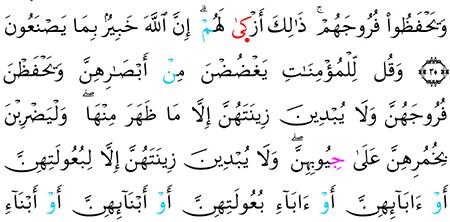 وَيَحۡفَظُواْ فُرُوجَهُمۡۚ ذَٰلِكَ أَزۡكَىٰ لَهُمۡۚ إِنَّ ٱللَّهَ خَبِيرُۢ بِمَا يَصۡنَعُونَ
﴿٣٠﴾ وَقُل لِّلۡمُؤۡمِنَٰتِ يَغۡضُضۡنَ مِنۡ أَبۡصَٰرِهِنَّ وَيَحۡفَظۡنَ
فُرُوجَهُنَّ وَلَا يُبۡدِينَ زِينَتَهُنَّ إِلَّا مَا ظَهَرَ مِنۡهَاۖ وَلۡيَضۡرِبۡنَ
بِخُمُرِهِنَّ عَلَىٰ جِيُوبِهِنَّۖ وَلَا يُبۡدِينَ زِينَتَهُنَّ إِلَّا لِبُعُولَتِهِنَّ
أَوۡ ءَابَآئِهِنَّ أَوۡ ءَابَآءِ بُعُولَتِهِنَّ أَوۡ أَبۡنَآئِهِنَّ أَوۡ أَبۡنَآءِ